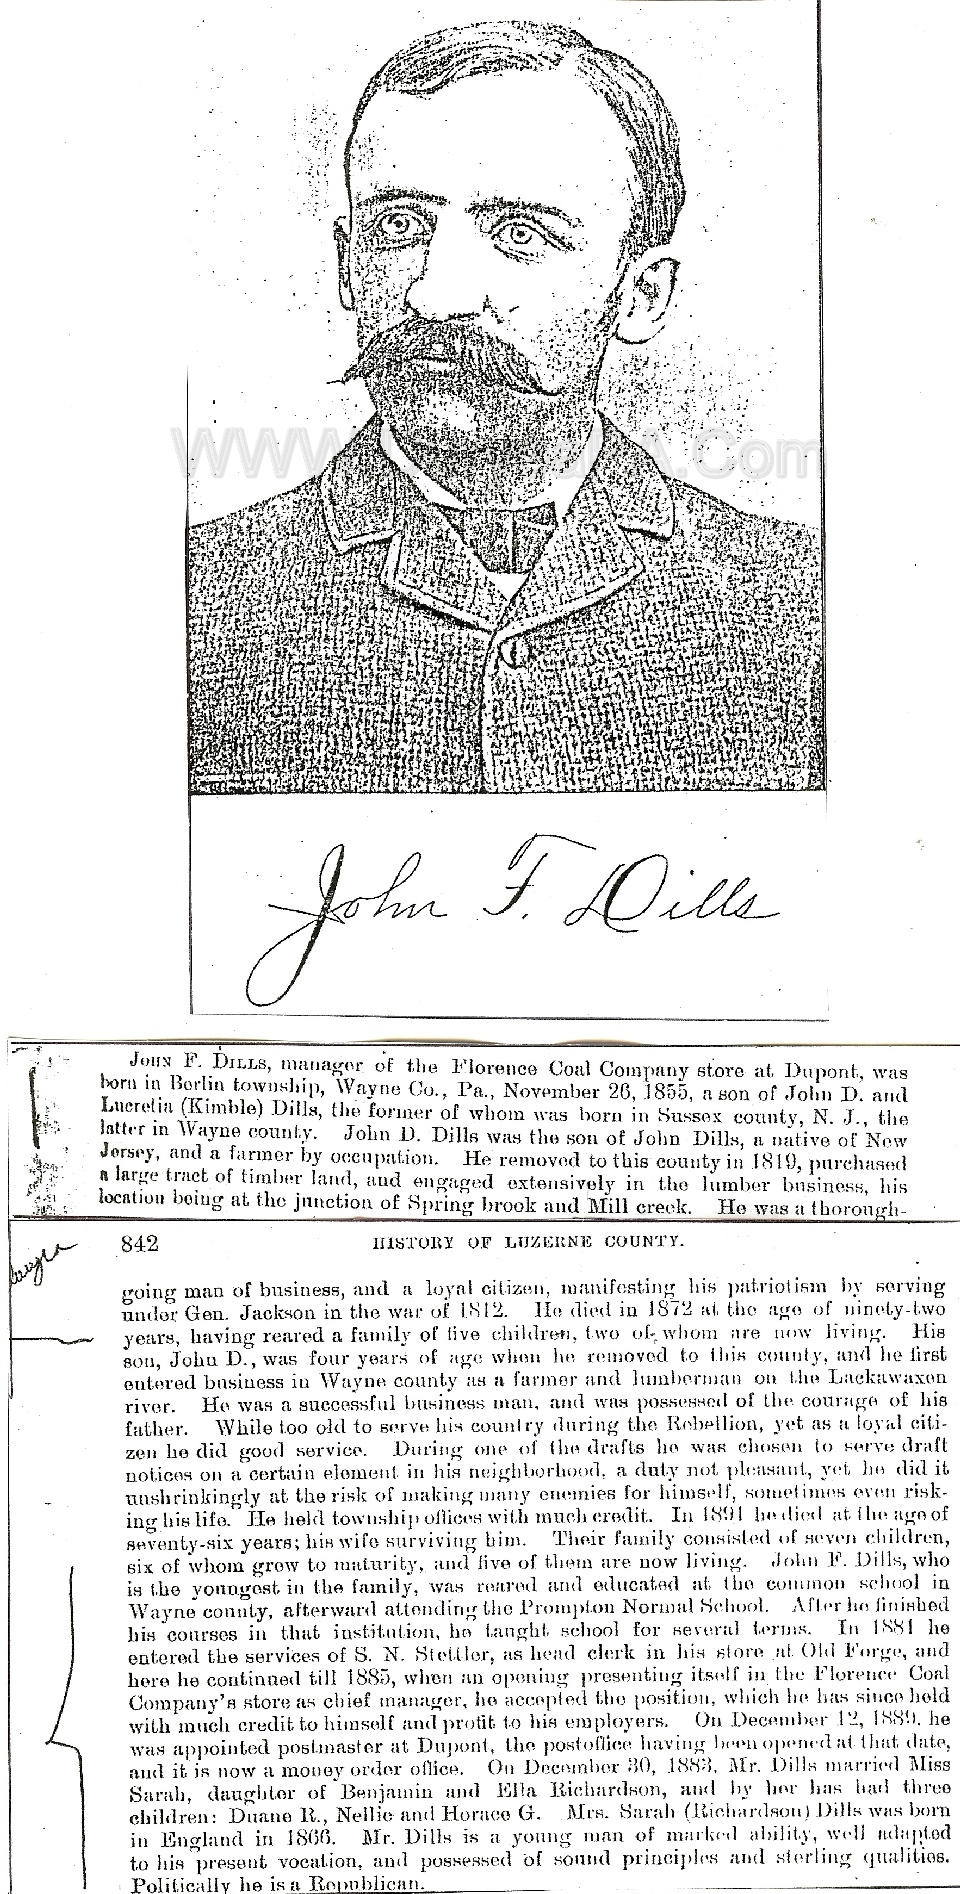 John F. Dills
JOHN F. DILLS, manager of the Florence Coal Company store at Dupont, was
born in Berlin township, Wayne Co., Pa., November 26, 1855, a son of John D. and
Lucretia (Kimble) Dills, the former of whom was born in Sussex county, N. J., the
latter in Wayne county. John D. Dills was the son of John Dills, a native of New
Jersey, and a farmer by occupation. He removed to this county in 1819, purchased
a large tract of timber land, and engaged extensively in the lumber business, his
location being at the junction of Spring brook and Mill creek. He was a thorough-
842 HISTORY OF LUZERNE COUNTY.
going man of business, and a loyal citizen, manifesting his patriotism by serving
under Gen. Jackson in the war of 1812. He died in 1872 at the age of ninety-two
years, having reared a family of five children, two of whom are now living. His
son, John D., was four years of age when he removed to this county, and he first
entered business in Wayne county as a farmer and lumberman on the Lackawaxen
river. He was a successful business man, and was possessed of the courage of his
father. While too old to serve his country during the Rebellion, yet as a loyal citi-
zen he did good service. During one of the drafts he was chosen to serve draft
notices on a certain element in his neighborhood, a duty not pleasant, yet he did it
unshrinkingly at the risk of making many enemies for himself, sometimes even risk-
ing his life. He held township offices with much credit. In 1891 he died at the age of
seventy-six years; his wife surviving him. Their family consisted of seven children,
six of whom grew to maturity, and five of them are now living. John F. Dills, who
is the youngest in the family, was reared and educated at the common school in
Wayne county, afterward attending the Prompton Normal School. After he finished
his courses in that institution, he taught school for several terms. In 1881 he
entered the services of S. N. Stettler, as head clerk in his store at Old Forge, and
here he continued till 1885, when an opening presenting itself in the Florence Coal
Company's store as chief manager, he accepted the position, which he has since held
with much credit to himself and profit to his employers. On December 12, 1889, he
was appointed postmaster at Dupont, the postoffice having been opened at that date,
and it is now a money order office. On December 30, 1883, Mr. Dills married Miss
Sarah, daughter of Benjamin and Ella Richardson, and by her has had three
children: Duane R., Nellie and Horace G. Mrs. Sarah (Richardson) Dills was born
in England in 1866. Mr. Dills is a young man of marked ability, well adapted
to his present vocation, and possessed of sound principles and sterling qualities.
Politically he is a Republican.